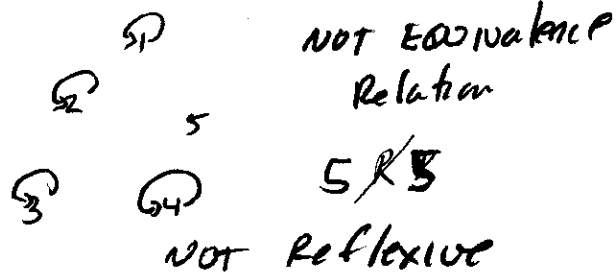 1 NOT EQUIvalence
2 Relation
5
3 4 5 R̸ 5
NOT Reflexive